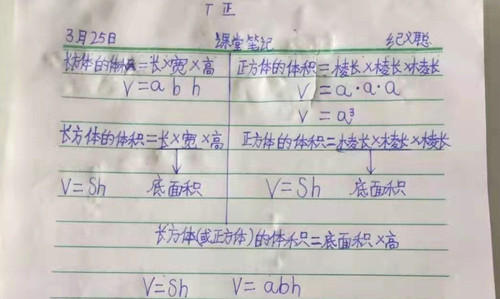 T 正
3月25日 课堂笔记 纪义聪
长方体的体积=长×宽×高 正方体的体积=棱长×棱长×棱长
V=abh V=a·a·a
V=a³
长方体的体积=长×宽×高 正方体的体积=棱长×棱长×棱长
V=Sh 底面积 V=Sh 底面积
长方体(或正方体)的体积=底面积×高
V=Sh V=abh